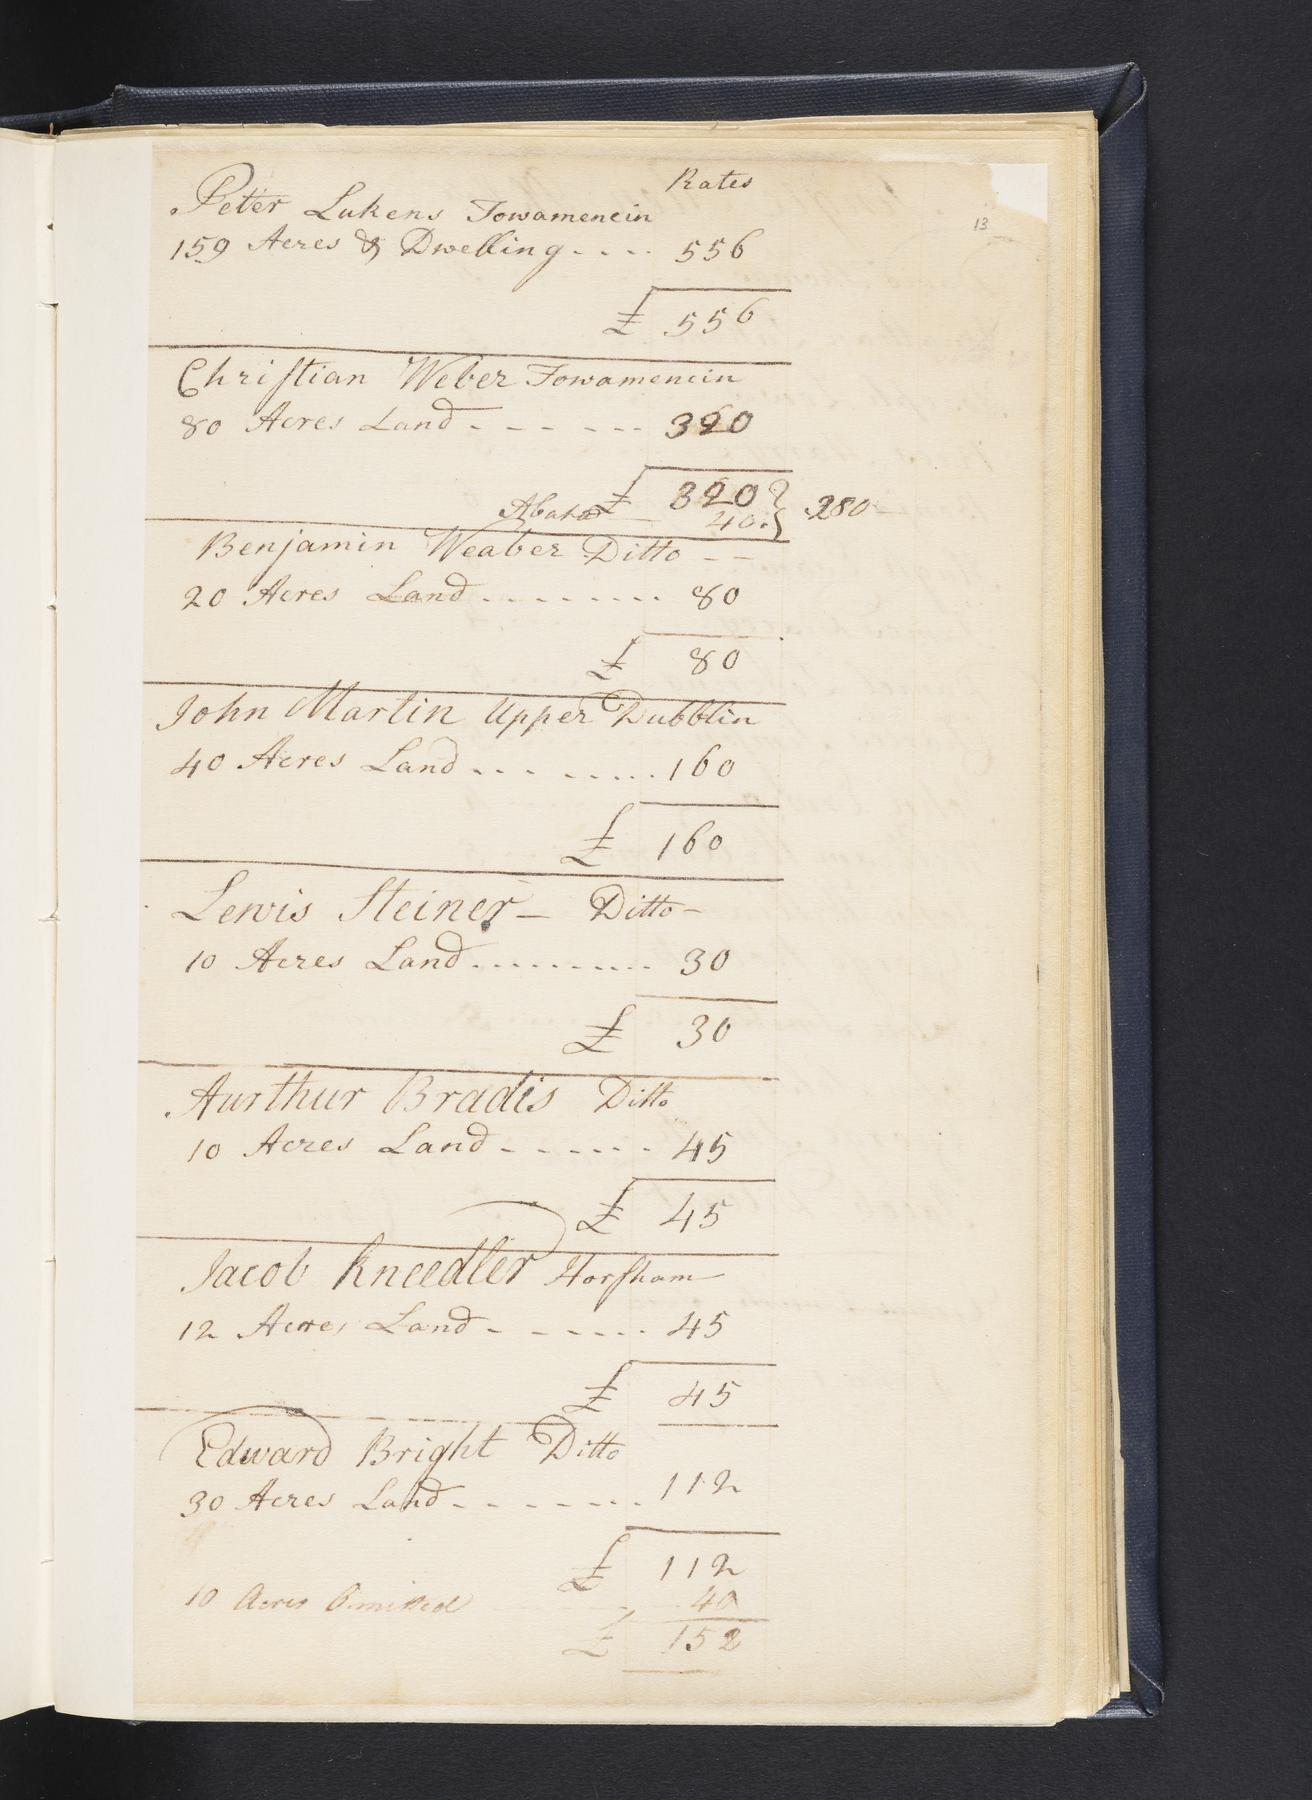 Rates
13
Peter Lukens Towamencin
159 Acres & Dwelling .... 556
£ 556
Christian Weber Towamencin
80 Acres Land - - - - - - 320
£ 320 }
Abated 40. } 280
Benjamin Weaber Ditto - -
20 Acres Land ......... 80
£ 80
John Martin Upper Dubblin
40 Acres Land ......... 160
£ 160
Lewis Steiner - Ditto -
10 Acres Land .......... 30
£ 30
Aurthur Bradis Ditto
10 Acres Land - - - - - - 45
£ 45
Jacob Kneedler Horsham
12 Acres Land - - - - - - 45
£ 45
Edward Bright Ditto
30 Acres Land - - - - - - - 112
£ 112
10 Acres Omitted 40
£ 152